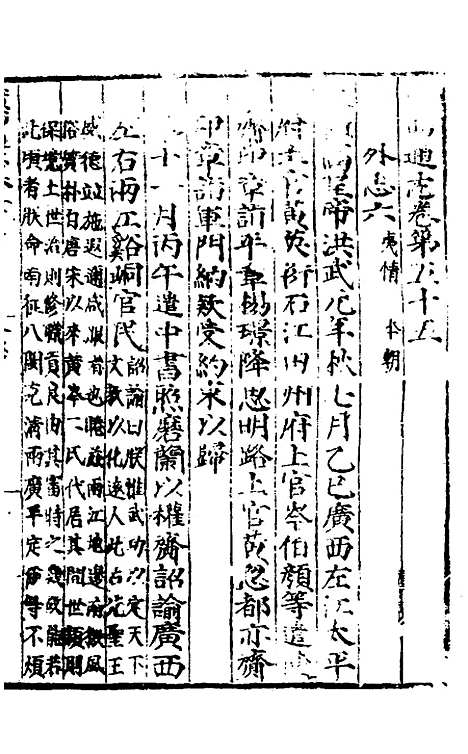 通志卷第五十五
外志六 夷情 本朝
皇帝洪武元年秋七月乙巳廣西左江太平
府土官黃英衍右江田州府土官岑伯顏等遣
齎印章詣平章楊璟降思明路土官黃忽都亦齎
印章詣軍門納款受約束以歸
十一月丙午遣中書照磨蘭以權齎詔諭廣西
左右兩江谿峒官民 詔諭曰朕惟武功以定天下
文教以化遠人此古先聖王
威德並施遐邇咸服者也睠茲兩江地邊府徼風
俗質朴自唐宋以來黃岑二氏代居其間世亂則
保境土世治則修職貢良由其審時之幾故能若
此頃者朕命南征八閩克清兩廣平定爾等不煩